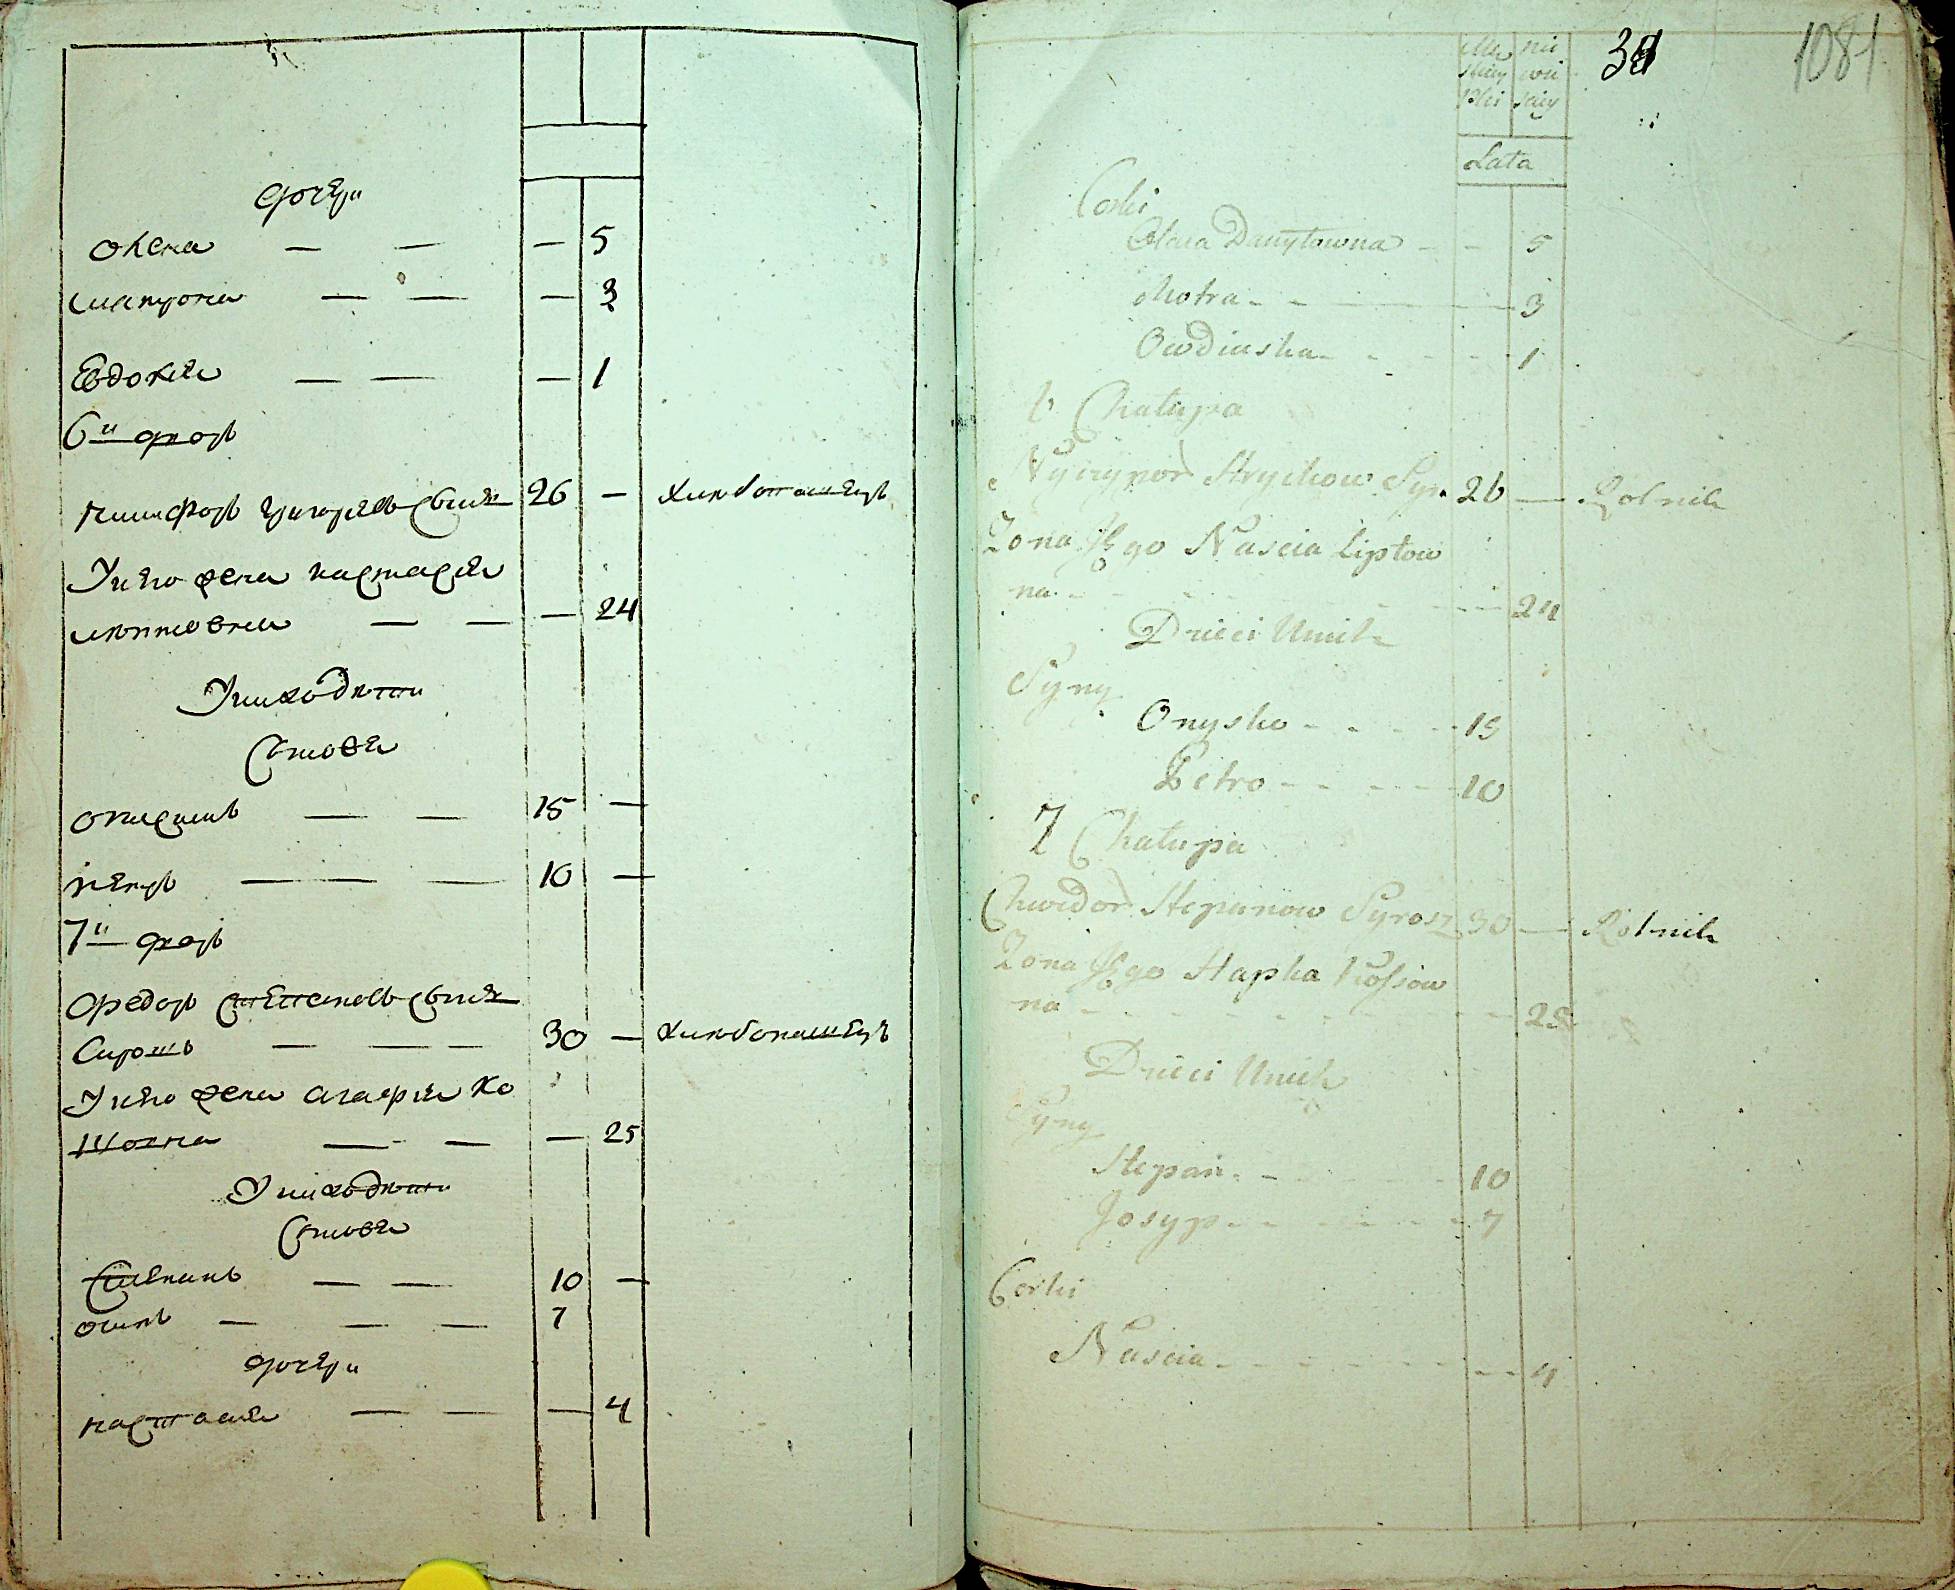 дочери
Олена — — — 5
Матрона — — — 3
Евдокия — — — 1
6й двор
Никифоръ Григорьевъ сынъ 26 — хлебопашецъ
У него жена Настасия
Липтовна — — — 24
У них дети
Сыновя
Онисимъ — — 15 —
Петръ — — — 10 —
7й дворъ
Федоръ Степановъ сынъ
Сирошъ — — — 30 — хлебопашецъ
У него жена Агафия Ко
— — — 25
У них дети
Сыновя
Степанъ — — 10 —
Осипъ — — — 7
дочери
Настасия — — — 4
Mę nie
skiey wie
płci sciey
34
1081
Lata
Corki
Danyłowna - - 5
Motra - - — 3
Owdiuska - - - 1
6 Chałupa
Nyczypor Hryckow Syn 26 — Rolnik
Zona Jego Nascia Liptow
na - - - - 24
Dzieci Umich
Syny
Onysko - - - 15
Petro - - - - 10
7 Chałupa
Chwedor Stepanow Syrosz 30 — Rolnik
Zona Jego Hapka Kossow
na - - - - - 25
Dzieci Unich
Syny
Stepan - - - 10
Josyp - - - - 7
Corki
Nascia - - - - 4